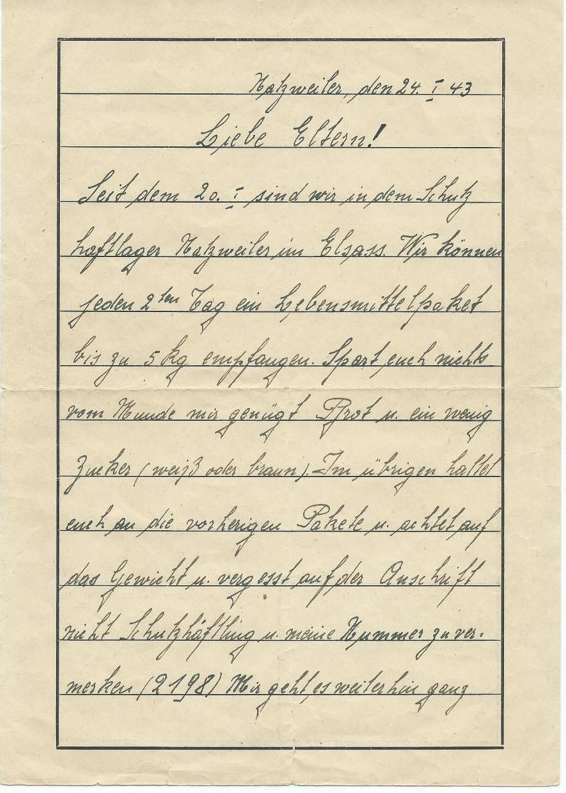 Natzweiler, den 24. I 43
Liebe Eltern!
Seit dem 20. I sind wir in dem Schutz
haftlager Natzweiler im Elsass. Wir können
jeden 2ten Tag ein Lebensmittelpaket
bis zu 5 kg empfangen. Spart euch nichts
vom Munde mir genügt Brot u. ein wenig
Zucker (weiß oder braun). Im übrigen haltet
euch an die vorherigen Pakete u. achtet auf
das Gewicht u. vergesst auf der Anschrift
nicht Schutzhäftling u. meine Nummer zu ver-
merken (2198) Mir geht es weiterhin ganz